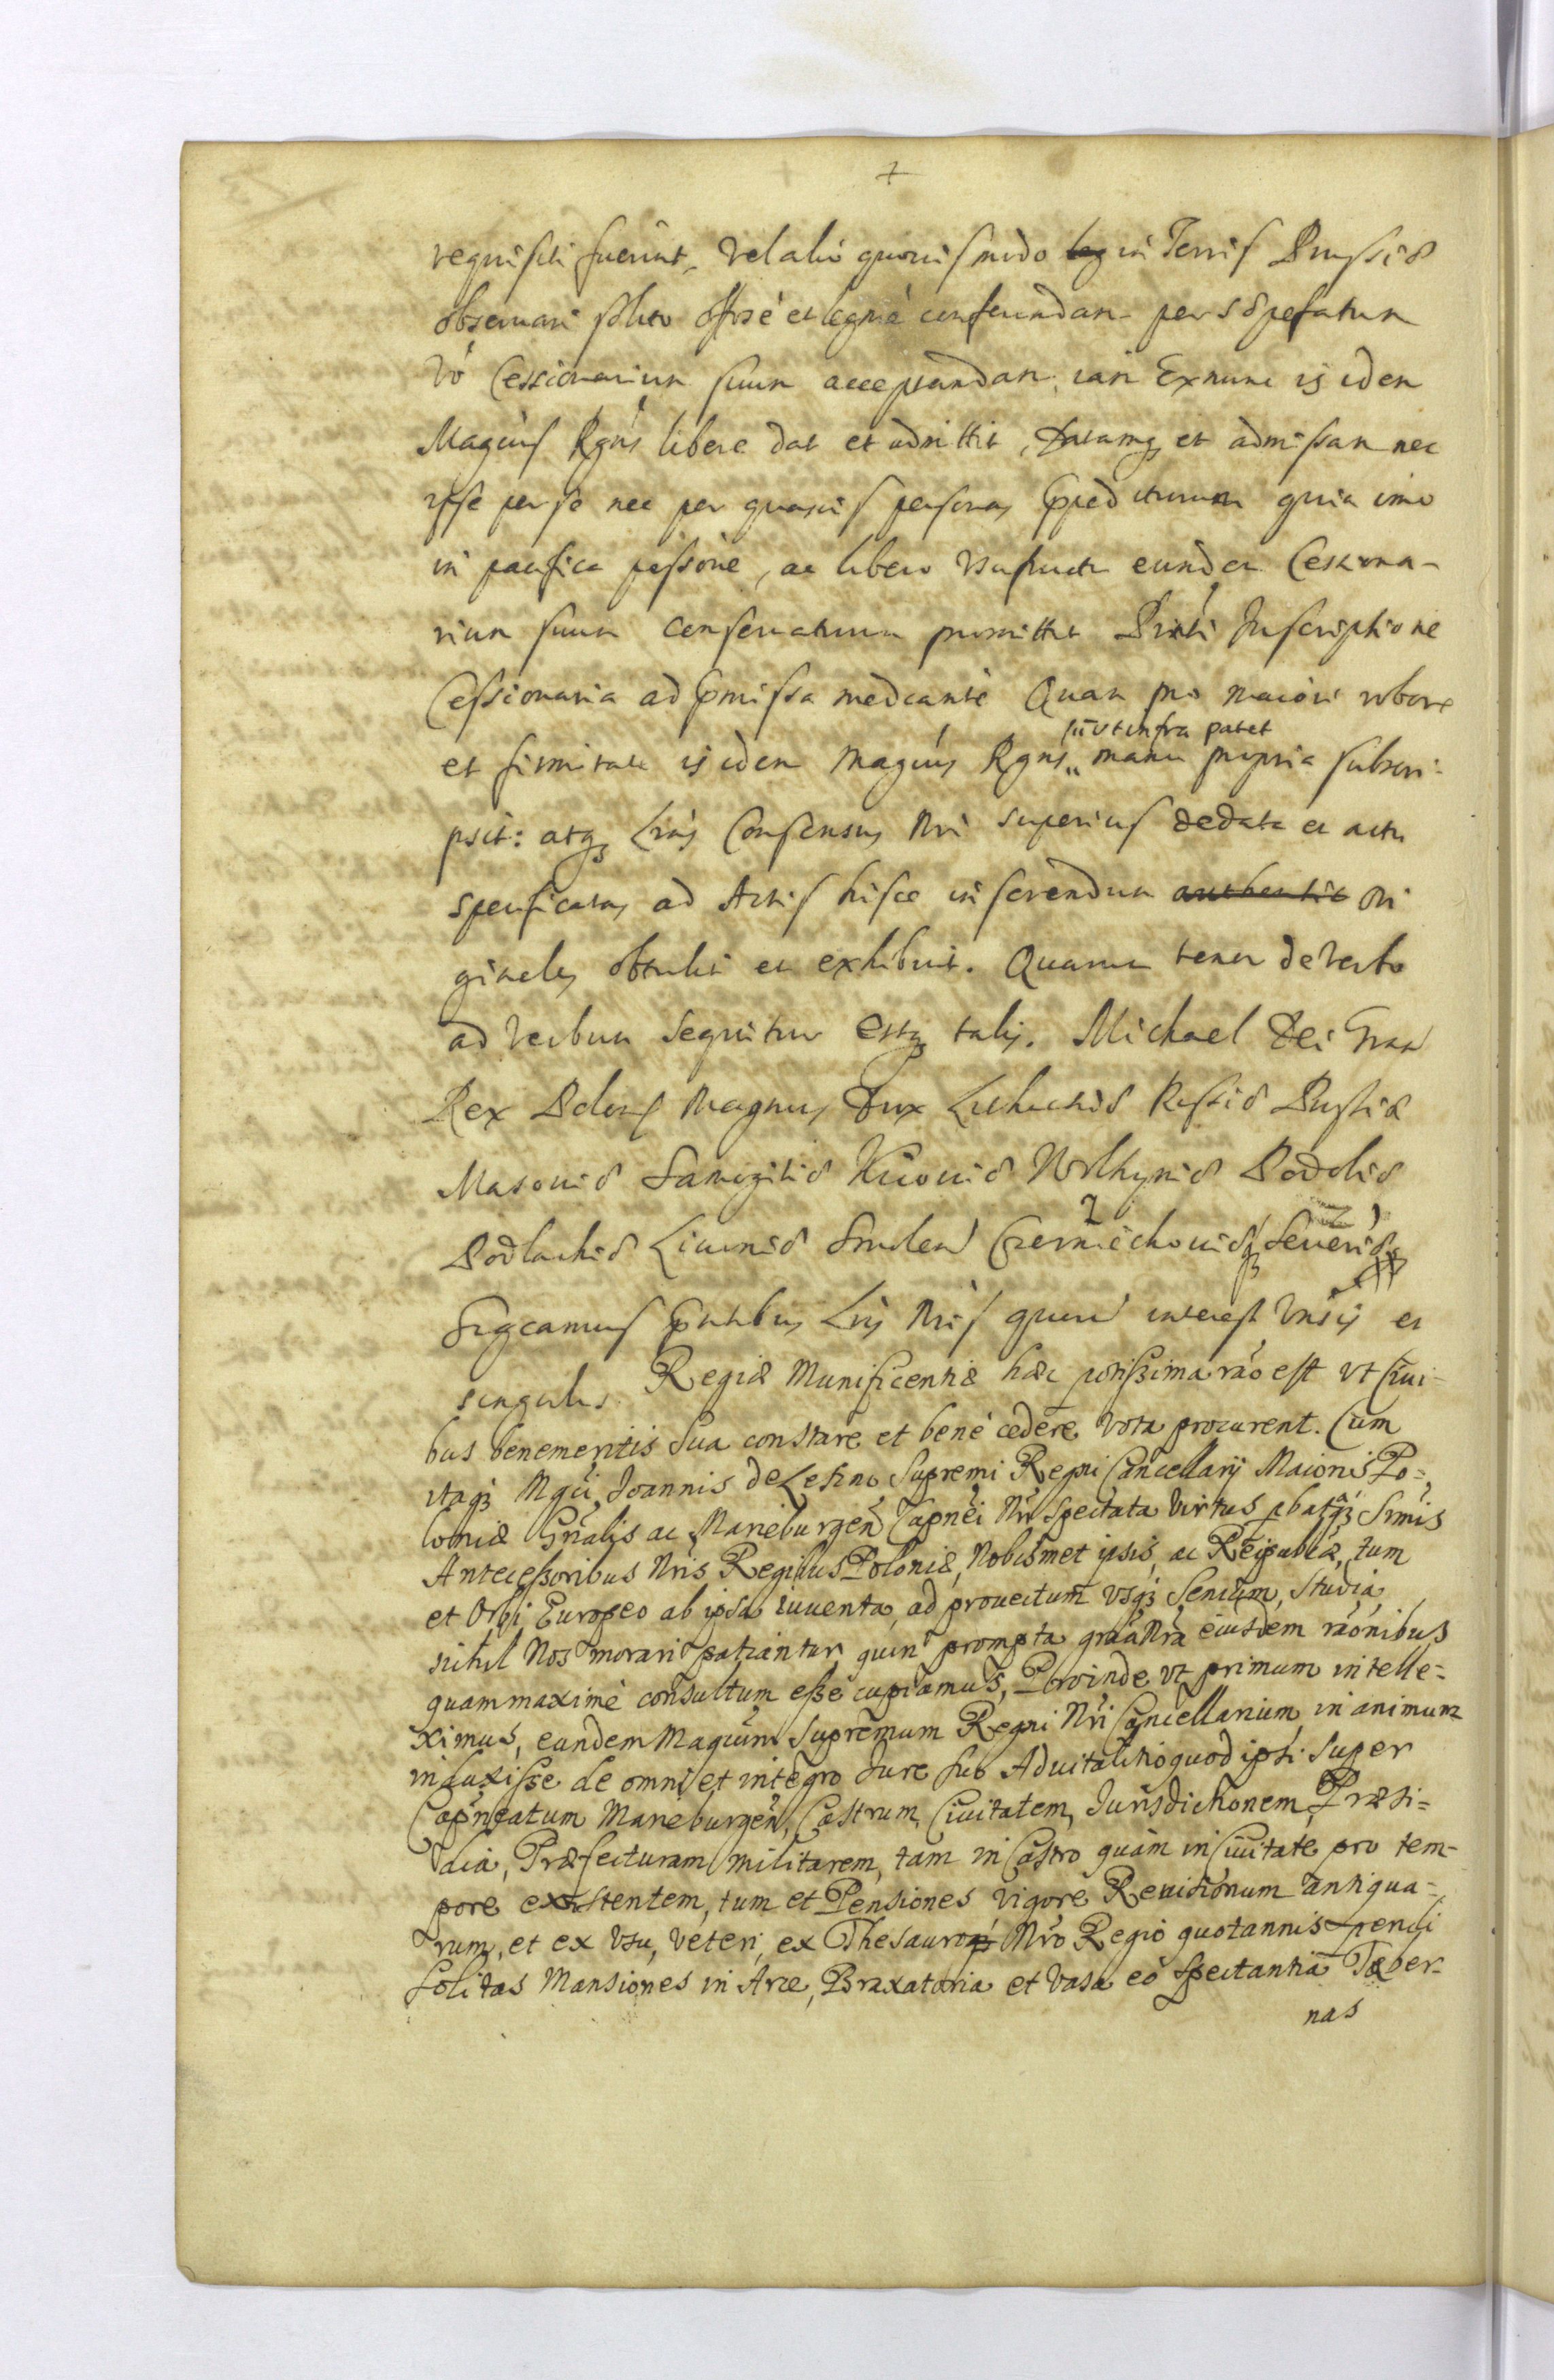 requisiti fuerint, vel alio quouis modo in Terris Prussiæ
obseruari solito offose et legme conferendam per sopefatum
Vo Cessionarium suum acceptandam, iam Exnunc is idem
Magcus Rgns libere dat et admittit, Datamq, et admissam nec
ipse per se nec per quasuis personas Ipediturum quin imo
in pacifica possione, ac libero Vsufructu eundem Cessiona-
rium suum conseruaturum promittit Pnti Inscriptione
Cessionaria ad pmissa mediante Quam pro maiori robore
sü vt infra patet
et firmitate is idem Magcus Rgns manu propria subscri-
psit: atq Lras Consensus Nri superius de data et actu
specificatas ad Actis hisce inserendum ori
ginales obtulit et exhibuit. Quarum tenor de Verbo
ad Verbum sequitur estq talis. Michael Dei Gratia
Rex Polonæ Magnus Dux Lithuaniæ Russiæ Prussiæ
Masouiæ Samogitiæ Kiiouiæ Volhyniæ Podoliæ
Podlachiæ Liuoniæ Smolen Czerniechouiæq Seueriæ
Sigcamus Pntibus Lris Nris quorum interest Vnsis et
singulis. Regiæ Munificentiæ hæc potissima rao est vt Ciui-
bus benemeritis Sua constare et bene cedere vota procurent. Cum
itaq Mgci Joannis de Lesno Supremi Regni Cancellarij Maioris Po-
loniæ Gnalis ac Marieburgen Capnei Nri spectata virtus pbataq Srmis
Antecessoribus Nris Regibus Poloniæ, Nobismet ipsis, ac Reipublicæ, tum
et Orbi Europeo ab ipsa iuuenta, ad prouectum vsq Senium, studia,
nihil Nos morari patiantur, quin prompta graa Nra eiusdem raonibus
quam maxime consultum esse cupiamus, Proinde vt primum intelle-
ximus, eundem Magcum Supremum Regni Nri Cancellarium, in animum
induxisse de omni et integro Jure suo Aduitalitio quod ipsi super
Capneatum Marieburgen, Castrum, Ciuitatem, Jurisdictionem, Præsi-
dia, Præfecturam militarem, tam in Castro quam in Ciuitate pro tem-
pore existentem, tum et Pensiones vigore Reuisionum antiqua-
rum, et ex Vsu, veteri, ex Thesauro Nro Regio quotannis pendi
solitas Mansiones in Arce, Braxatoria et Vasa eo spectantia Taber-
nas